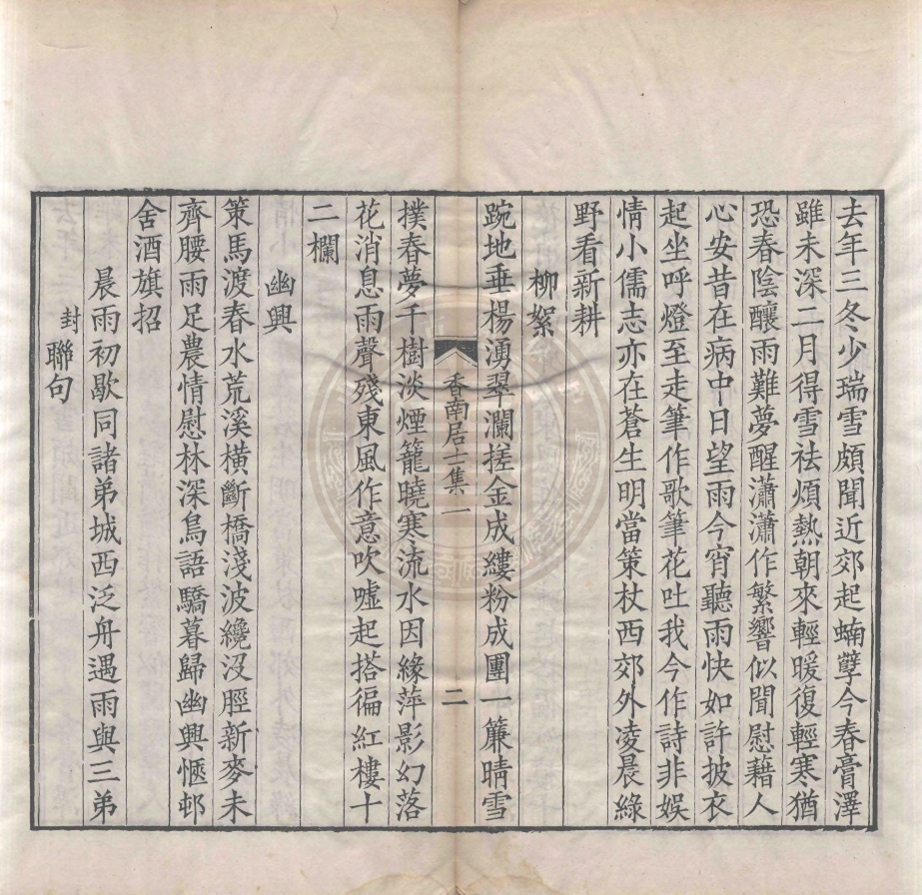 去年三冬少瑞雪頗聞近郊起蝻孽今春膏澤
雖未深二月得雪祛煩熱朝來輕暖復輕寒猶
恐春陰釀雨難夢醒瀟瀟作繁響似聞慰藉人
心安昔在病中日望雨今宵聽雨快如許披衣
起坐呼燈至走筆作歌筆花吐我今作詩非娱
情小儒志亦在蒼生明當策杖西郊外凌晨綠
野看新耕
柳絮
踠地垂楊湧翠瀾搓金成縷粉成團一簾晴雪
香南居士集一
二
撲春夢千樹淡煙籠曉寒流水因緣萍影幻落
花消息雨聲殘東風作意吹噓起搭徧紅樓十
二欄
幽興
策馬渡春水荒溪橫斷橋淺波纔沒脛新麥未
齊腰雨足農情慰林深鳥語驕暮歸幽興愜邨
舍酒旗招
晨雨初歇同諸弟城西泛舟遇雨與三弟
封聯句